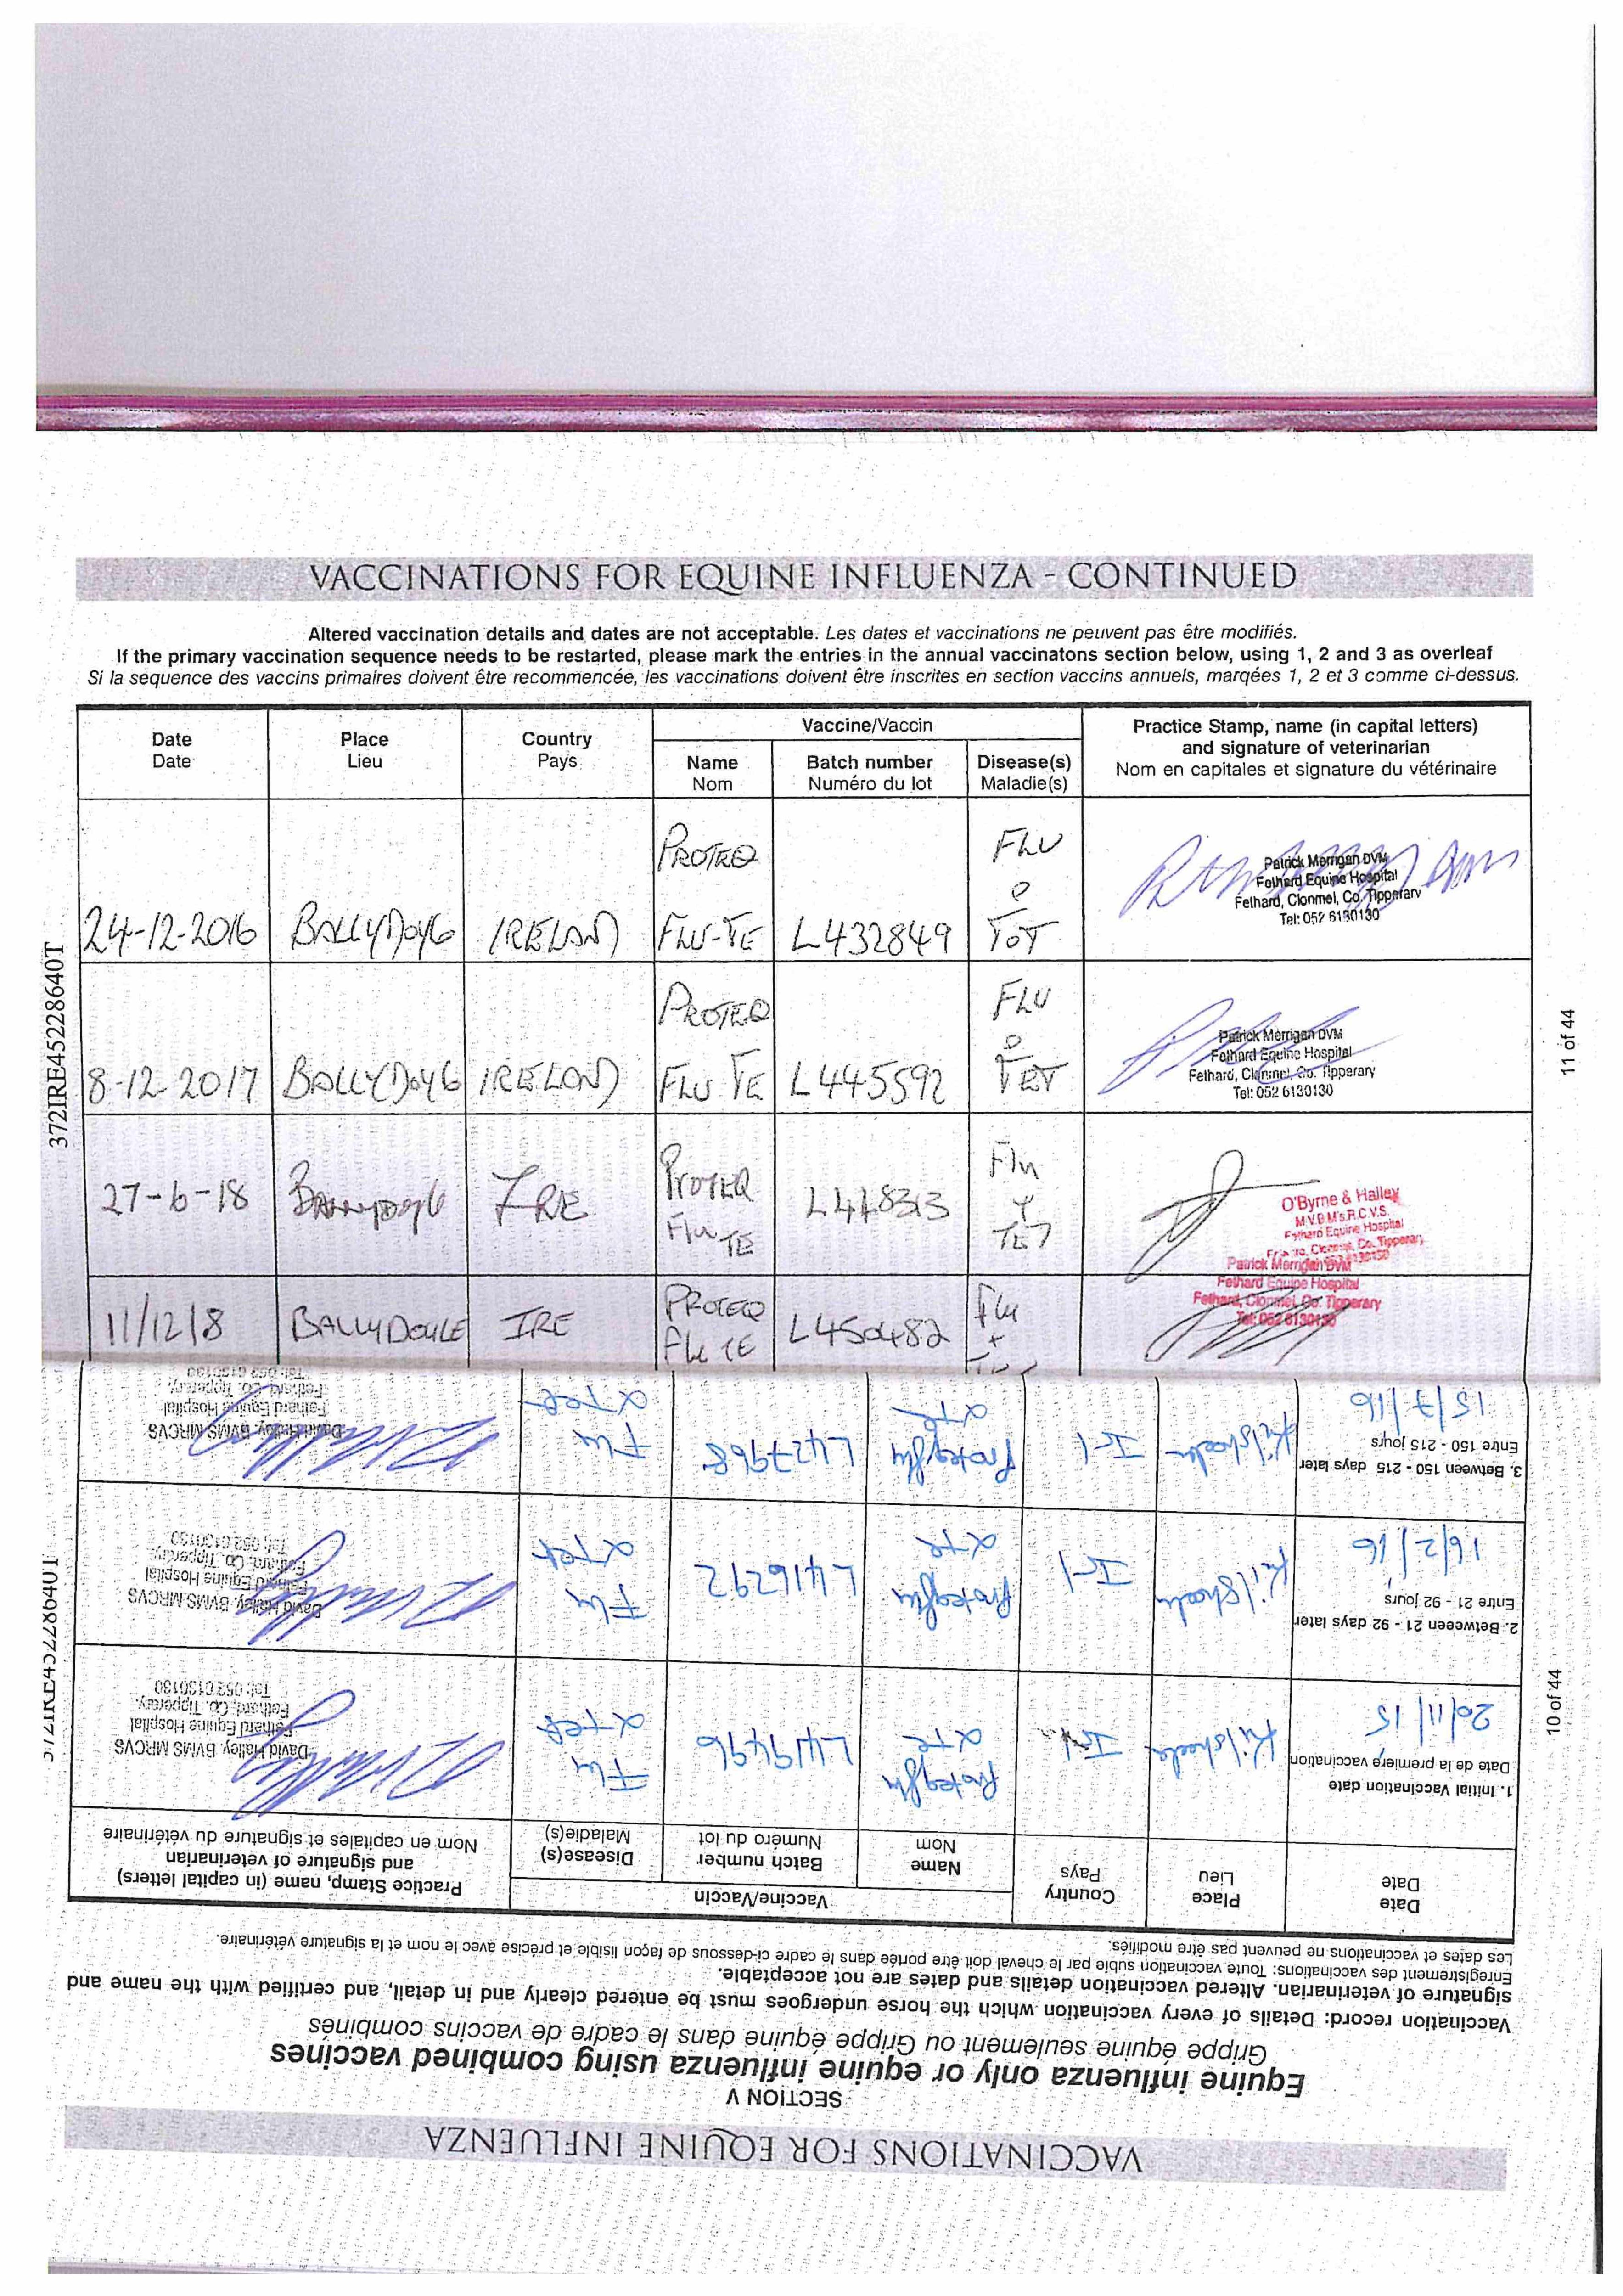 VACCINATIONS FOR EQUINE INFLUENZA - CONTINUED
Altered vaccination details and dates are not acceptable. Les dates et vaccinations ne peuvent pas être modifiés.
If the primary vaccination sequence needs to be restarted, please mark the entries in the annual vaccinatons section below, using 1, 2 and 3 as overleaf
Si la sequence des vaccins primaires doivent être recommencée, les vaccinations doivent être inscrites en section vaccins annuels, marqées 1, 2 et 3 comme ci-dessus.
Date
Date
Place
Lieu
Country
Pays
Vaccine/Vaccin
Name
Nom
Batch number
Numéro du lot
Disease(s)
Maladie(s)
Practice Stamp, name (in capital letters)
and signature of veterinarian
Nom en capitales et signature du vétérinaire
24-12-2016 BALLYDOYLE IRELAND PROTEQ FLU-TE L432849 FLU TET
Patrick Merrigan DVM
Fethard Equine Hospital
Fethard, Clonmel, Co. Tipperary
Tel: 052 6130130
8-12-2017 BALLYDOYLE IRELAND PROTEQ FLU TE L445592 FLU TET
Patrick Merrigan DVM
Fethard Equine Hospital
Fethard, Clonmel, Co. Tipperary
Tel: 052 6130130
27-6-18 BALLYDOYLE IRE PROTEQ Flu TE L448313 Flu TET
O'Byrne & Halley
M.V.B M's.R.C.V.S.
Fethard Equine Hospital
Fethard, Clonmel, Co. Tipperary
11/12/8 BALLYDOYLE IRE PROTEQ Flu TE L450482 Flu +
Patrick Merrigan DVM
Fethard Equine Hospital
Fethard, Clonmel, Co. Tipperary
Tel: 052 6130130
372IRE45228640T
11 of 44
VACCINATIONS FOR EQUINE INFLUENZA
SECTION V
Equine influenza only or equine influenza using combined vaccines
Grippe équine seulement ou Grippe équine dans le cadre de vaccins combinés
Vaccination record: Details of every vaccination which the horse undergoes must be entered clearly and in detail, and certified with the name and
signature of veterinarian. Altered vaccination details and dates are not acceptable.
Enregistrement des vaccinations: Toute vaccination subie par le cheval doit être portée dans le cadre ci-dessous de façon lisible et précise avec le nom et la signature vétérinaire.
Les dates et vaccinations ne peuvent pas être modifiés.
Date
Date
Place
Lieu
Country
Pays
Vaccine/Vaccin
Name
Nom
Batch number
Numéro du lot
Disease(s)
Maladie(s)
Practice Stamp, name (in capital letters)
and signature of veterinarian
Nom en capitales et signature du vétérinaire
1. Initial Vaccination date
Date de la première vaccination
20/11/15 Kilsheelan Irl Proteqflu x te L419496 Flu x Tet
David Halley, BVMS MRCVS
Fethard Equine Hospital
Fethard, Co. Tipperary.
Tel: 052 6130130
2. Betweeen 21 - 92 days later
Entre 21 - 92 jours
16/2/16 Kilsheelan Irl Proteqflu x te L416292 Flu x Tet
David Halley, BVMS MRCVS
Fethard Equine Hospital
Fethard, Co. Tipperary.
Tel: 052 6130130
3. Between 150 - 215 days later
Entre 150 - 215 jours
15/7/16 Kilsheelan Irl Proteqflu x te L427968 Flu x Tet
David Halley, BVMS MRCVS
Fethard Equine Hospital
Fethard, Co. Tipperary.
Tel: 052 6130130
372IRE45228640T
10 of 44